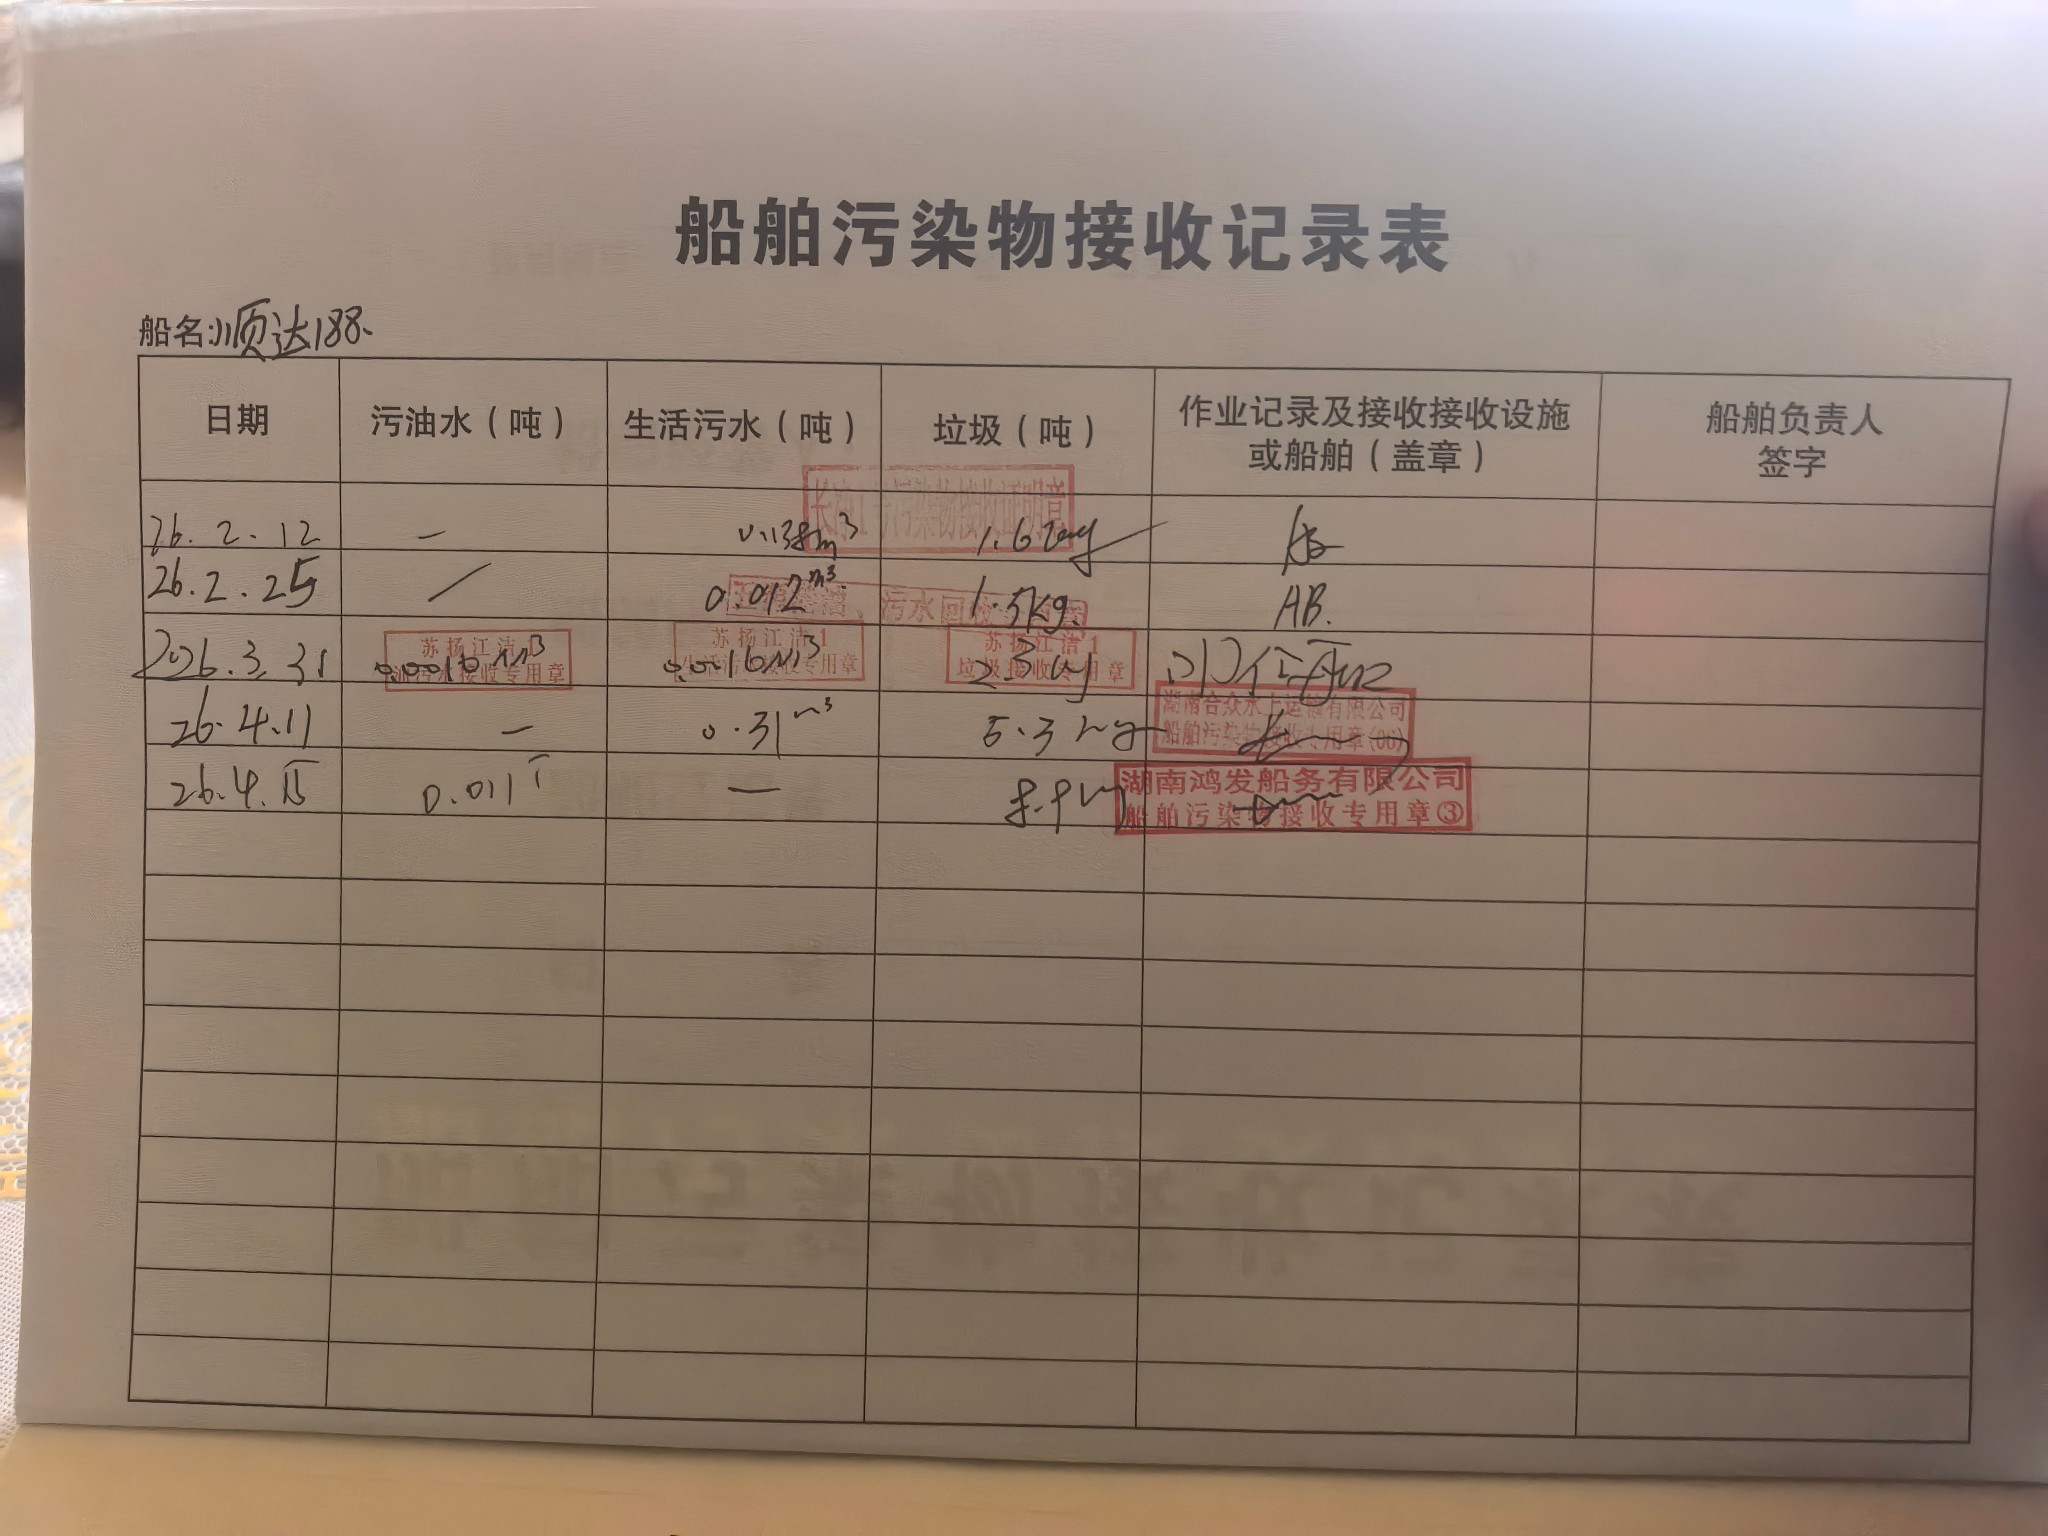 船舶污染物接收记录表
船名:顺达188.
日期 污油水（吨） 生活污水（吨） 垃圾（吨） 作业记录及接收接收设施或船舶（盖章） 船舶负责人签字
26.2.12 — 0.138m³
污染物接收证明章
26.2.25 / 0.012m³ 1.5kg. AB.
、污水回收
2026.3.31
苏扬江洁1 苏扬江洁1 苏扬江洁1
油污水接收专用章 生活污水接收专用章 垃圾接收专用章
26.4.11 — 0.31m³ 5.3kg
湖南合众水上运输有限公司
船舶污染物接收专用章(06)
26.4.15 0.011T —
湖南鸿发船务有限公司
船舶污染物接收专用章③